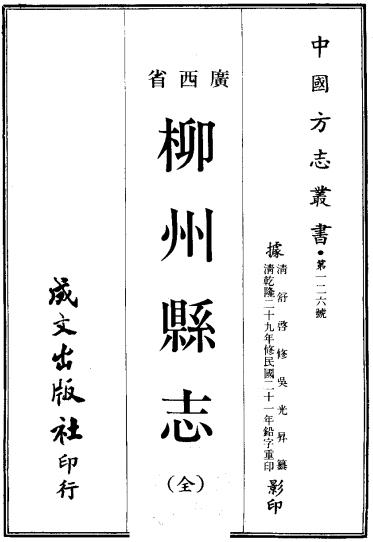 中國方志叢書·第一二六號
據
清舒啓修吳光昇纂
清乾隆二十九年修民國二十一年鉛字重印
影印
廣西省
柳州縣志
(全)
成文出版社印行